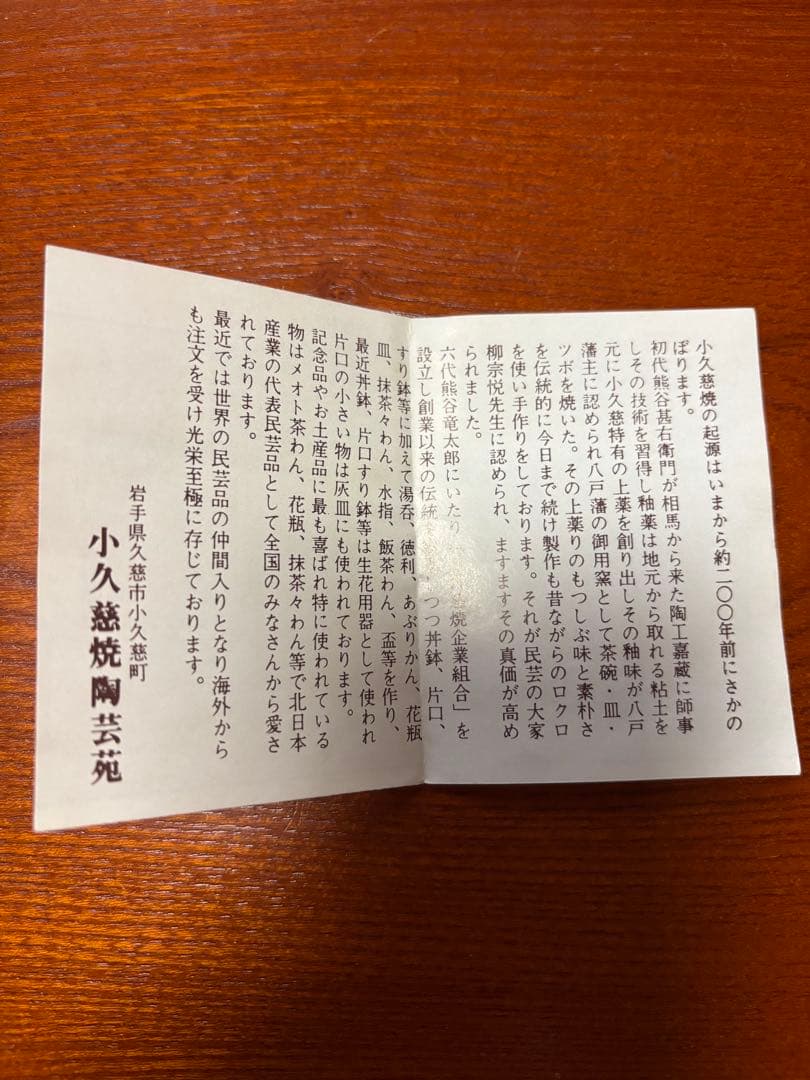 小久慈焼の起源はいまから約二〇〇年前にさかの
ぼります。
初代熊谷甚右衛門が相馬から来た陶工嘉蔵に師事
しその技術を習得し釉薬は地元から取れる粘土を
元に小久慈特有の上薬を創り出しその釉味が八戸
藩主に認められ八戸藩の御用窯として茶碗・皿・
ツボを焼いた。その上薬りのもつしぶ味と素朴さ
を伝統的に今日まで続け製作も昔ながらのロクロ
を使い手作りをしております。それが民芸の大家
柳宗悦先生に認められ、ますますその真価が高め
られました。
六代熊谷竜太郎にいたり 焼企業組合」を
設立し創業以来の伝統 つつ丼鉢、片口、
すり鉢等に加えて湯呑、徳利、あぶりかん、花瓶
皿、抹茶々わん、水指、飯茶わん、盃等を作り、
最近丼鉢、片口すり鉢等は生花用器として使われ
片口の小さい物は灰皿にも使われております。
記念品やお土産品に最も喜ばれ特に使われている
物はメオト茶わん、花瓶、抹茶々わん等で北日本
産業の代表民芸品として全国のみなさんから愛さ
れております。
最近では世界の民芸品の仲間入りとなり海外から
も注文を受け光栄至極に存じております。
岩手県久慈市小久慈町
小久慈焼陶芸苑